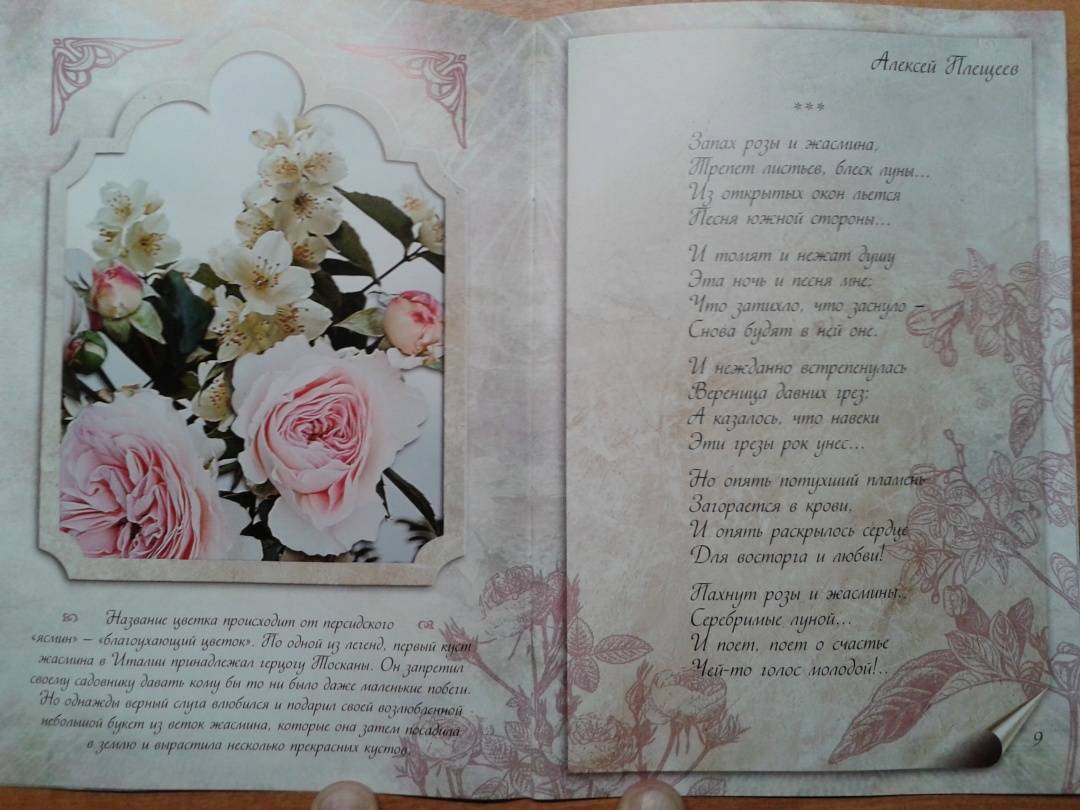 Название цветка происходит от персидского
«ясмин» – «благоухающий цветок». По одной из легенд, первый куст
жасмина в Италии принадлежал герцогу Тосканы. Он запретил
своему садовнику давать кому бы то ни было даже маленькие побеги.
Но однажды верный слуга влюбился и подарил своей возлюбленной
небольшой букет из веток жасмина, которые она затем посадила
в землю и вырастила несколько прекрасных кустов.
Алексей Плещеев
***
Запах розы и жасмина,
Трепет листьев, блеск луны...
Из открытых окон льется
Песня южной стороны...
И томят и нежат душу
Эта ночь и песня мне;
Что затихло, что заснуло –
Снова будят в ней оне.
И нежданно встрепенулась
Вереница давних грез;
А казалось, что навеки
Эти грезы рок унес...
Но опять потухший пламень
Загорается в крови,
И опять раскрылось сердце
Для восторга и любви!
Пахнут розы и жасмины,
Серебримые луной...
И поет, поет о счастье
Чей-то голос молодой!..
9